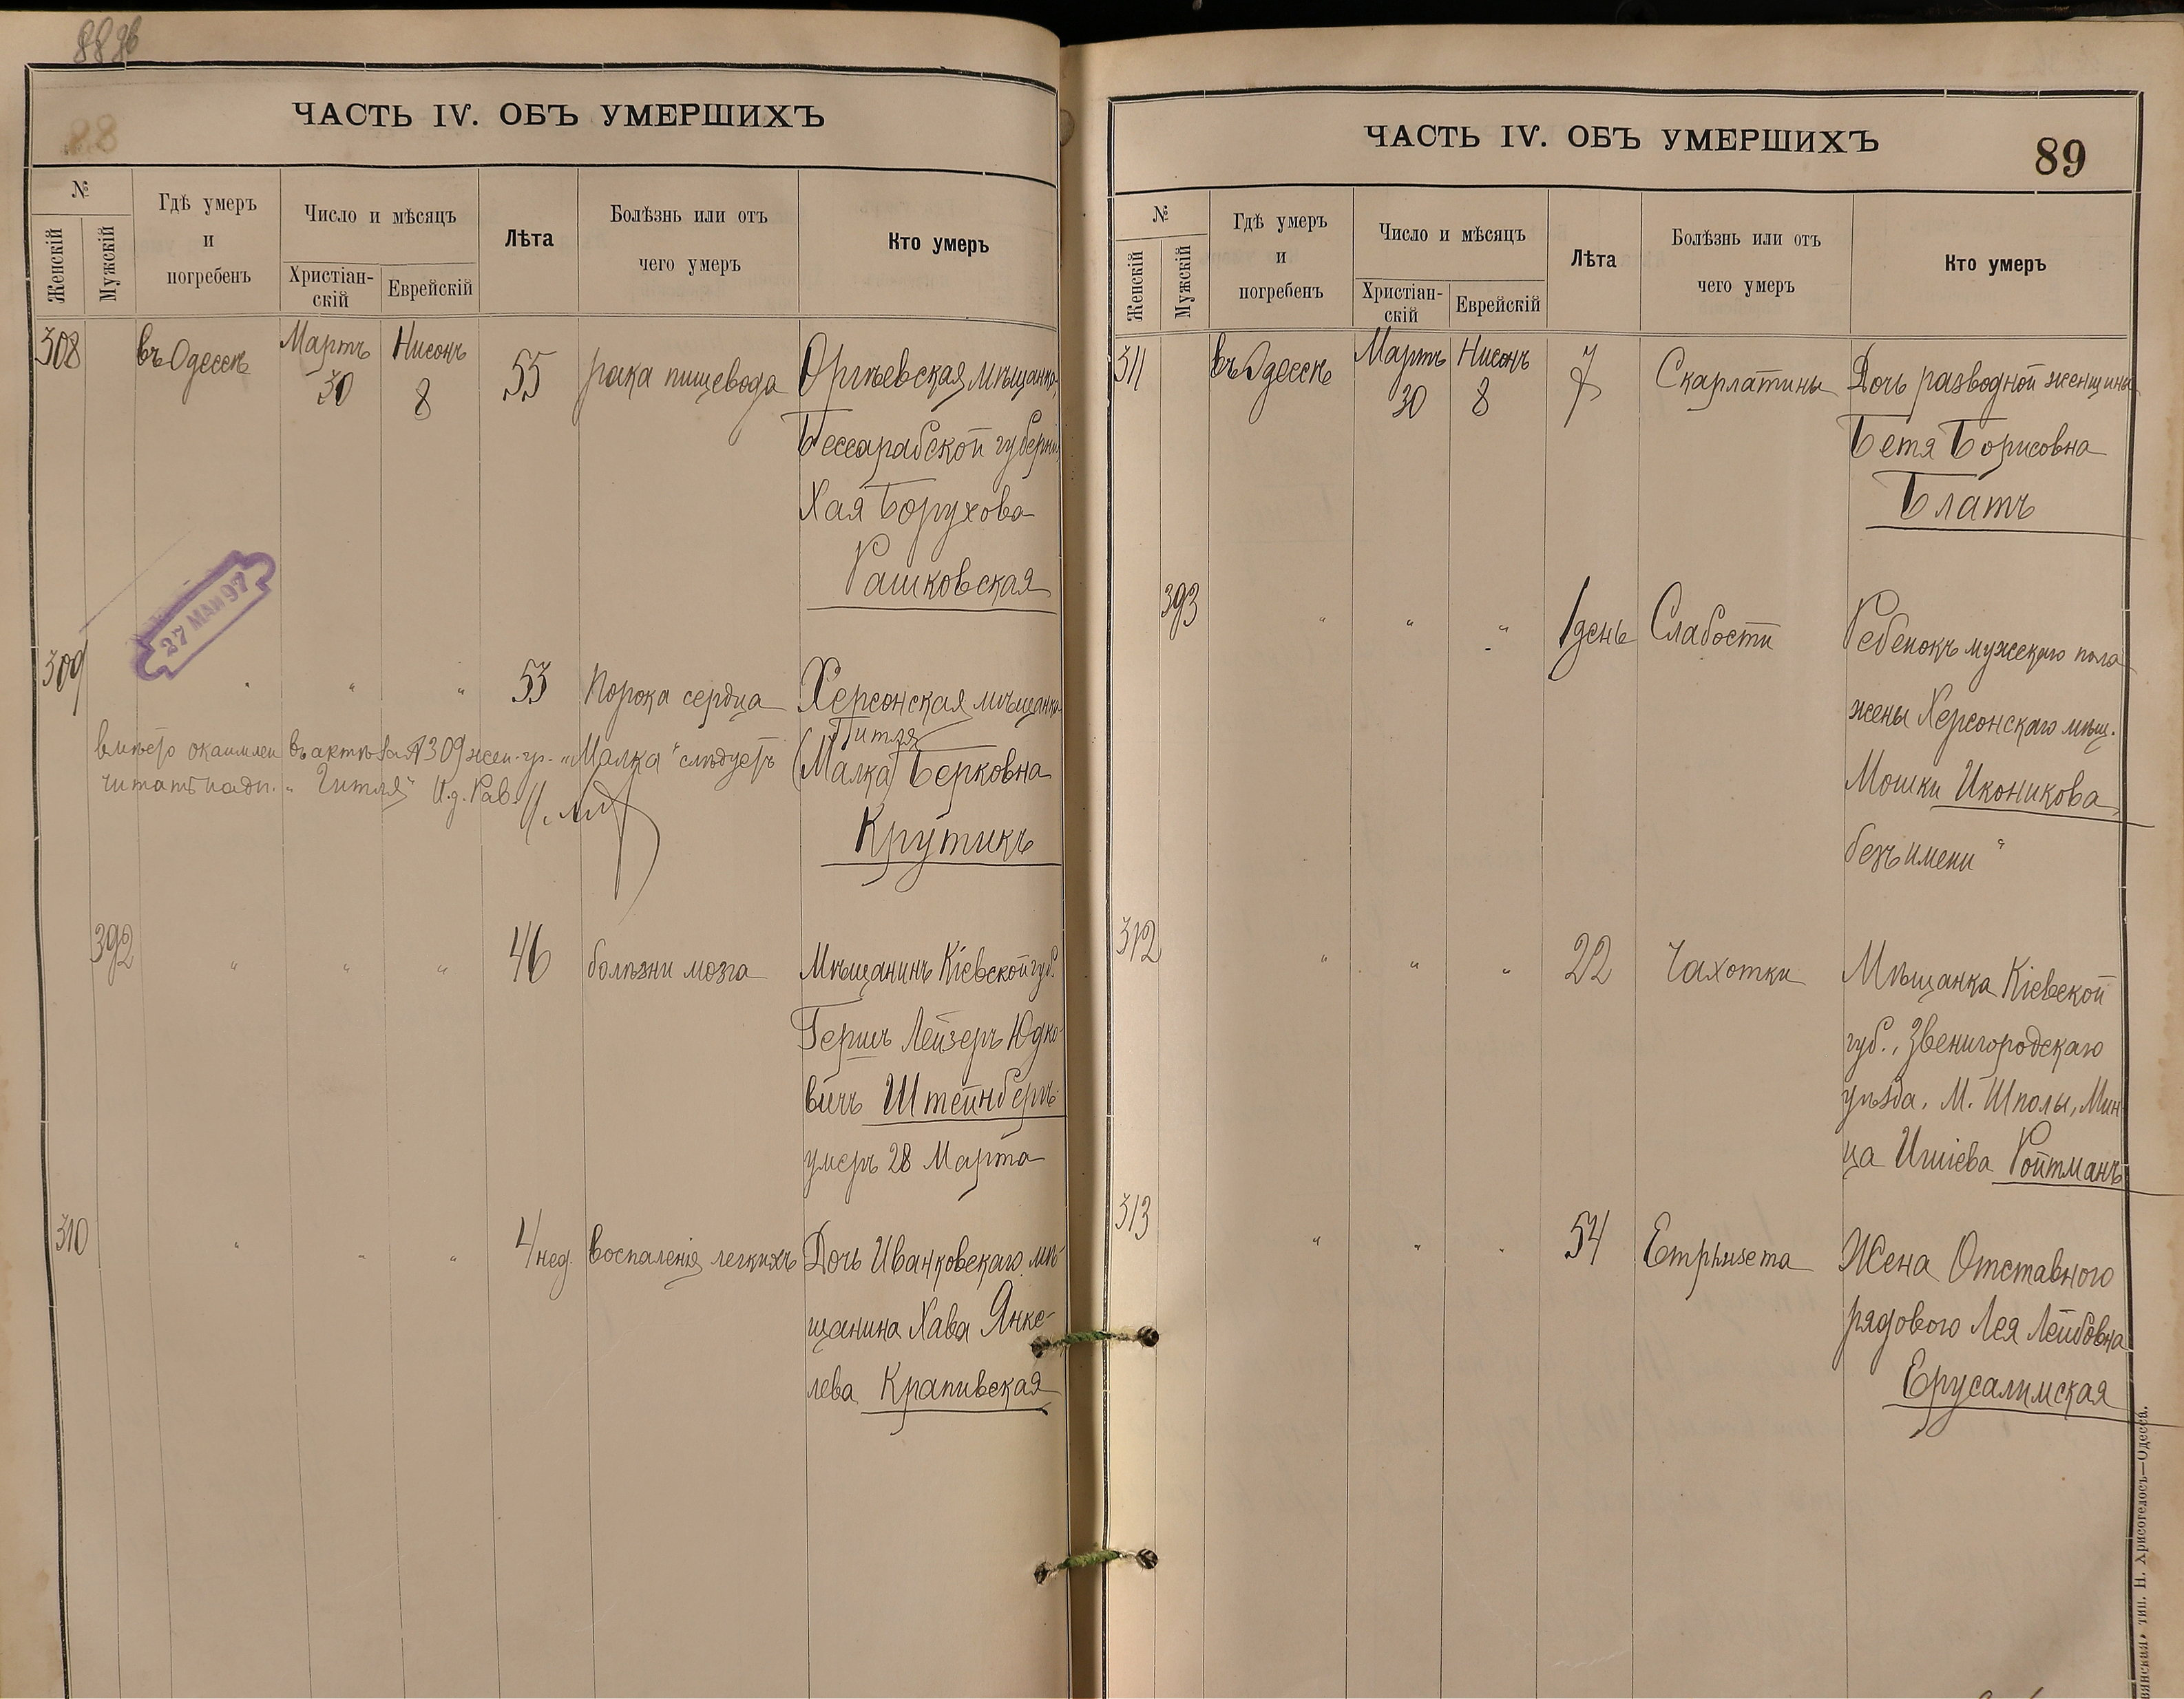 88 96
88
ЧАСТЬ IV. ОБЪ УМЕРШИХЪ
№
Женскій
Мужскій
Гдѣ умеръ
и
погребенъ
Число и мѣсяцъ
Христіан-
скій
Еврейскій
Лѣта
Болѣзнь или отъ
чего умеръ
Кто умеръ
308 въ Одессѣ Мартъ 30 Нисонъ 8 55 рака пищевода Оргѣевская мѣщанка,
Бессарабской губерніи
Хая Борухова
Рашковская
27 МАЯ 97
309 " " " 53 Порока сердца Херсонская мѣщанка
Гитля
(Малка) Берковна
Крутикъ
вмѣсто въ актѣ за № 309 жен. гр. "Малка" слѣдуетъ
читать "Гитля" И.д. Рав.
392 " " " 46 болѣзни мозга Мѣщанинъ Кіевской губ.
Гершъ Лейзеръ Юдко-
вичъ Штейнбергъ
умеръ 28 Марта
310 " " " 4 нед. воспаленія легкихъ Дочь Иванковскаго мѣ-
щанина Хава Янке-
лева Крапивская
ЧАСТЬ IV. ОБЪ УМЕРШИХЪ
89
№
Женскій
Мужскій
Гдѣ умеръ
и
погребенъ
Число и мѣсяцъ
Христіан-
скій
Еврейскій
Лѣта
Болѣзнь или отъ
чего умеръ
Кто умеръ
311 въ Одессѣ Мартъ 30 Нисонъ 8 7 Скарлатины Дочь разводной женщины
Бетя Борисовна
Блатъ
393 " " " 1 день Слабости Ребенокъ мужскаго пола
жены Херсонскаго мѣщ.
Мошки Иконикова
безъ имени "
312 " " " 22 Чахотки Мѣщанка Кіевской
губ., Звенигородскаго
уѣзда, М. Шполы, Мин-
ца Ишіева Ройтманъ
313 " " " 54 Emphisema Жена Отставного
рядового Лея Лейбовна
Ерусалимская
тип. Н. Хрисогелосъ—Одесса.